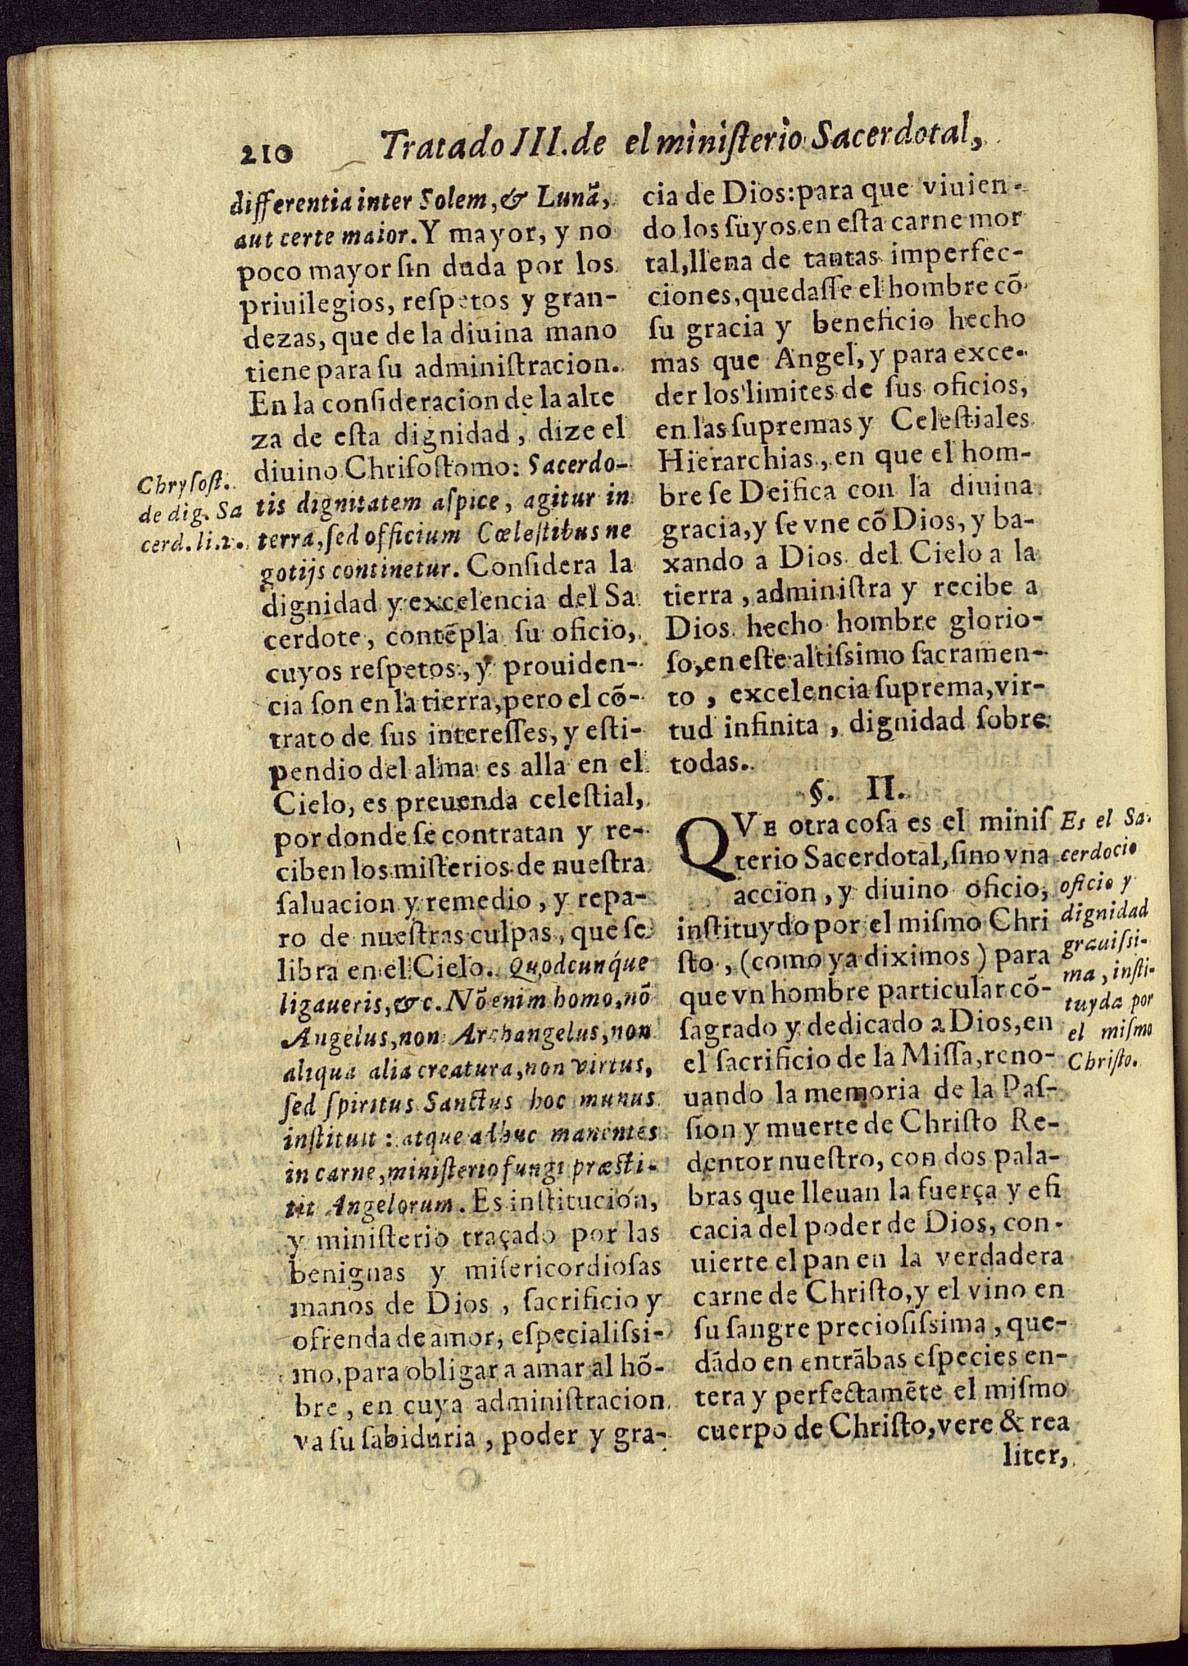 210
Tratado III. de el ministerio Sacerdotal,
differentia inter Solem, & Lunã,
aut certe maior. Y mayor, y no
poco mayor sin duda por los
priuilegios, respetos y gran-
dezas, que de la diuina mano
tiene para su administracion.
En la consideracion de la alte
za de esta dignidad, dize el
diuino Chrisostomo: Sacerdo-
tis dignitatem aspice, agitur in
terra, sed officium Cœlestibus ne
gotijs continetur. Considera la
dignidad y excelencia del Sa
cerdote, contẽpla su oficio,
cuyos respetos, y prouiden-
cia son en la tierra, pero el cõ-
trato de sus interesses, y esti-
pendio del alma es alla en el
Cielo, es preuenda celestial,
por donde se contratan y re-
ciben los misterios de nuestra
saluacion y remedio, y repa-
ro de nuestras culpas, que se
libra en el Cielo. Quodcunque
ligaueris, &c. Nõ enim homo, nõ
Angelus, non Archangelus, non
aliqua alia creatura, non virtus,
sed spiritus Sanctus hoc munus
instituit: atque adhuc manentes
in carne, ministerio fungi præsti-
tit Angelorum. Es institucion,
y ministerio traçado por las
benignas y misericordiosas
manos de Dios, sacrificio y
ofrenda de amor, especialissi-
mo, para obligar a amar al hõ-
bre, en cuya administracion
va su sabiduria, poder y gra-
Chrysost.
de dig. Sa
cerd. li. 2.
cia de Dios: para que viuien-
do los suyos en esta carne mor
tal, llena de tantas imperfec-
ciones, quedasse el hombre cõ
su gracia y beneficio hecho
mas que Angel, y para exce-
der los limites de sus oficios,
en las supremas y Celestiales
Hierarchias, en que el hom-
bre se Deifica con la diuina
gracia, y se vne cõ Dios, y ba-
xando a Dios del Cielo a la
tierra, administra y recibe a
Dios hecho hombre glorio-
so, en este altissimo sacramen-
to, excelencia suprema, vir-
tud infinita, dignidad sobre
todas.
§. II.
QVE otra cosa es el minis
terio Sacerdotal, sino vna
accion, y diuino oficio,
instituydo por el mismo Chri
sto, (como ya diximos) para
que vn hombre particular cõ-
sagrado y dedicado a Dios, en
el sacrificio de la Missa, reno-
uando la memoria de la Pas-
sion y muerte de Christo Re-
dentor nuestro, con dos pala-
bras que lleuan la fuerça y efi
cacia del poder de Dios, con-
uierte el pan en la verdadera
carne de Christo, y el vino en
su sangre preciosissima, que-
dãdo en entrãbas especies en-
tera y perfectamẽte el mismo
cuerpo de Christo, vere & rea
liter,
Es el Sa-
cerdocio
oficio y
dignidad
grauissi-
ma, insti-
tuyda por
el mismo
Christo.